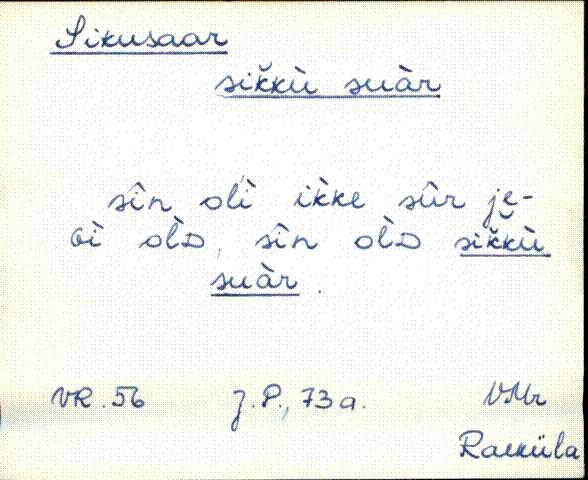 Sikusaar
sik̆kù suàr
sîn olì ikke sûr je-
oì olD, sîn olD sik̆kù
suàr.
VR. 56 J. P., 73 a. VMr
Raeküla